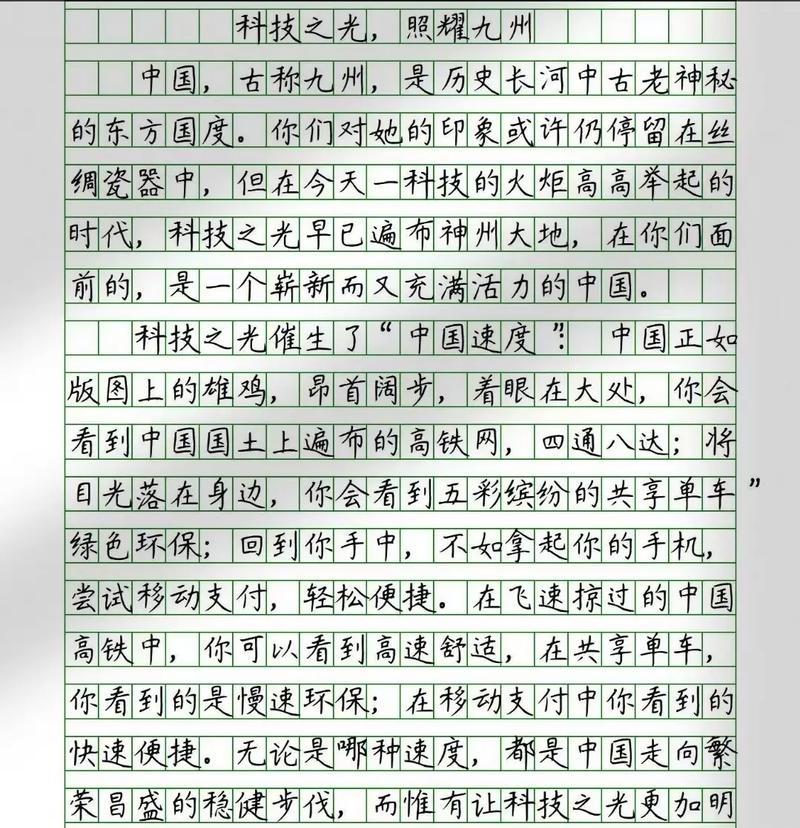 科技之光，照耀九州
中国，古称九州，是历史长河中古老神秘
的东方国度。你们对她的印象或许仍停留在丝
绸瓷器中，但在今天一科技的火炬高高举起的
时代，科技之光早已遍布神州大地，在你们面
前的，是一个崭新而又充满活力的中国。
科技之光催生了“中国速度”：中国正如
版图上的雄鸡，昂首阔步，着眼在大处，你会
看到中国国土上遍布的高铁网，四通八达；将
目光落在身边，你会看到五彩缤纷的共享单车”
绿色环保；回到你手中，不如拿起你的手机，
尝试移动支付，轻松便捷。在飞速掠过的中国
高铁中，你可以看到高速舒适，在共享单车，
你看到的是慢速环保；在移动支付中你看到的
快速便捷。无论是哪种速度，都是中国走向繁
荣昌盛的稳健步伐，而惟有让科技之光更加明